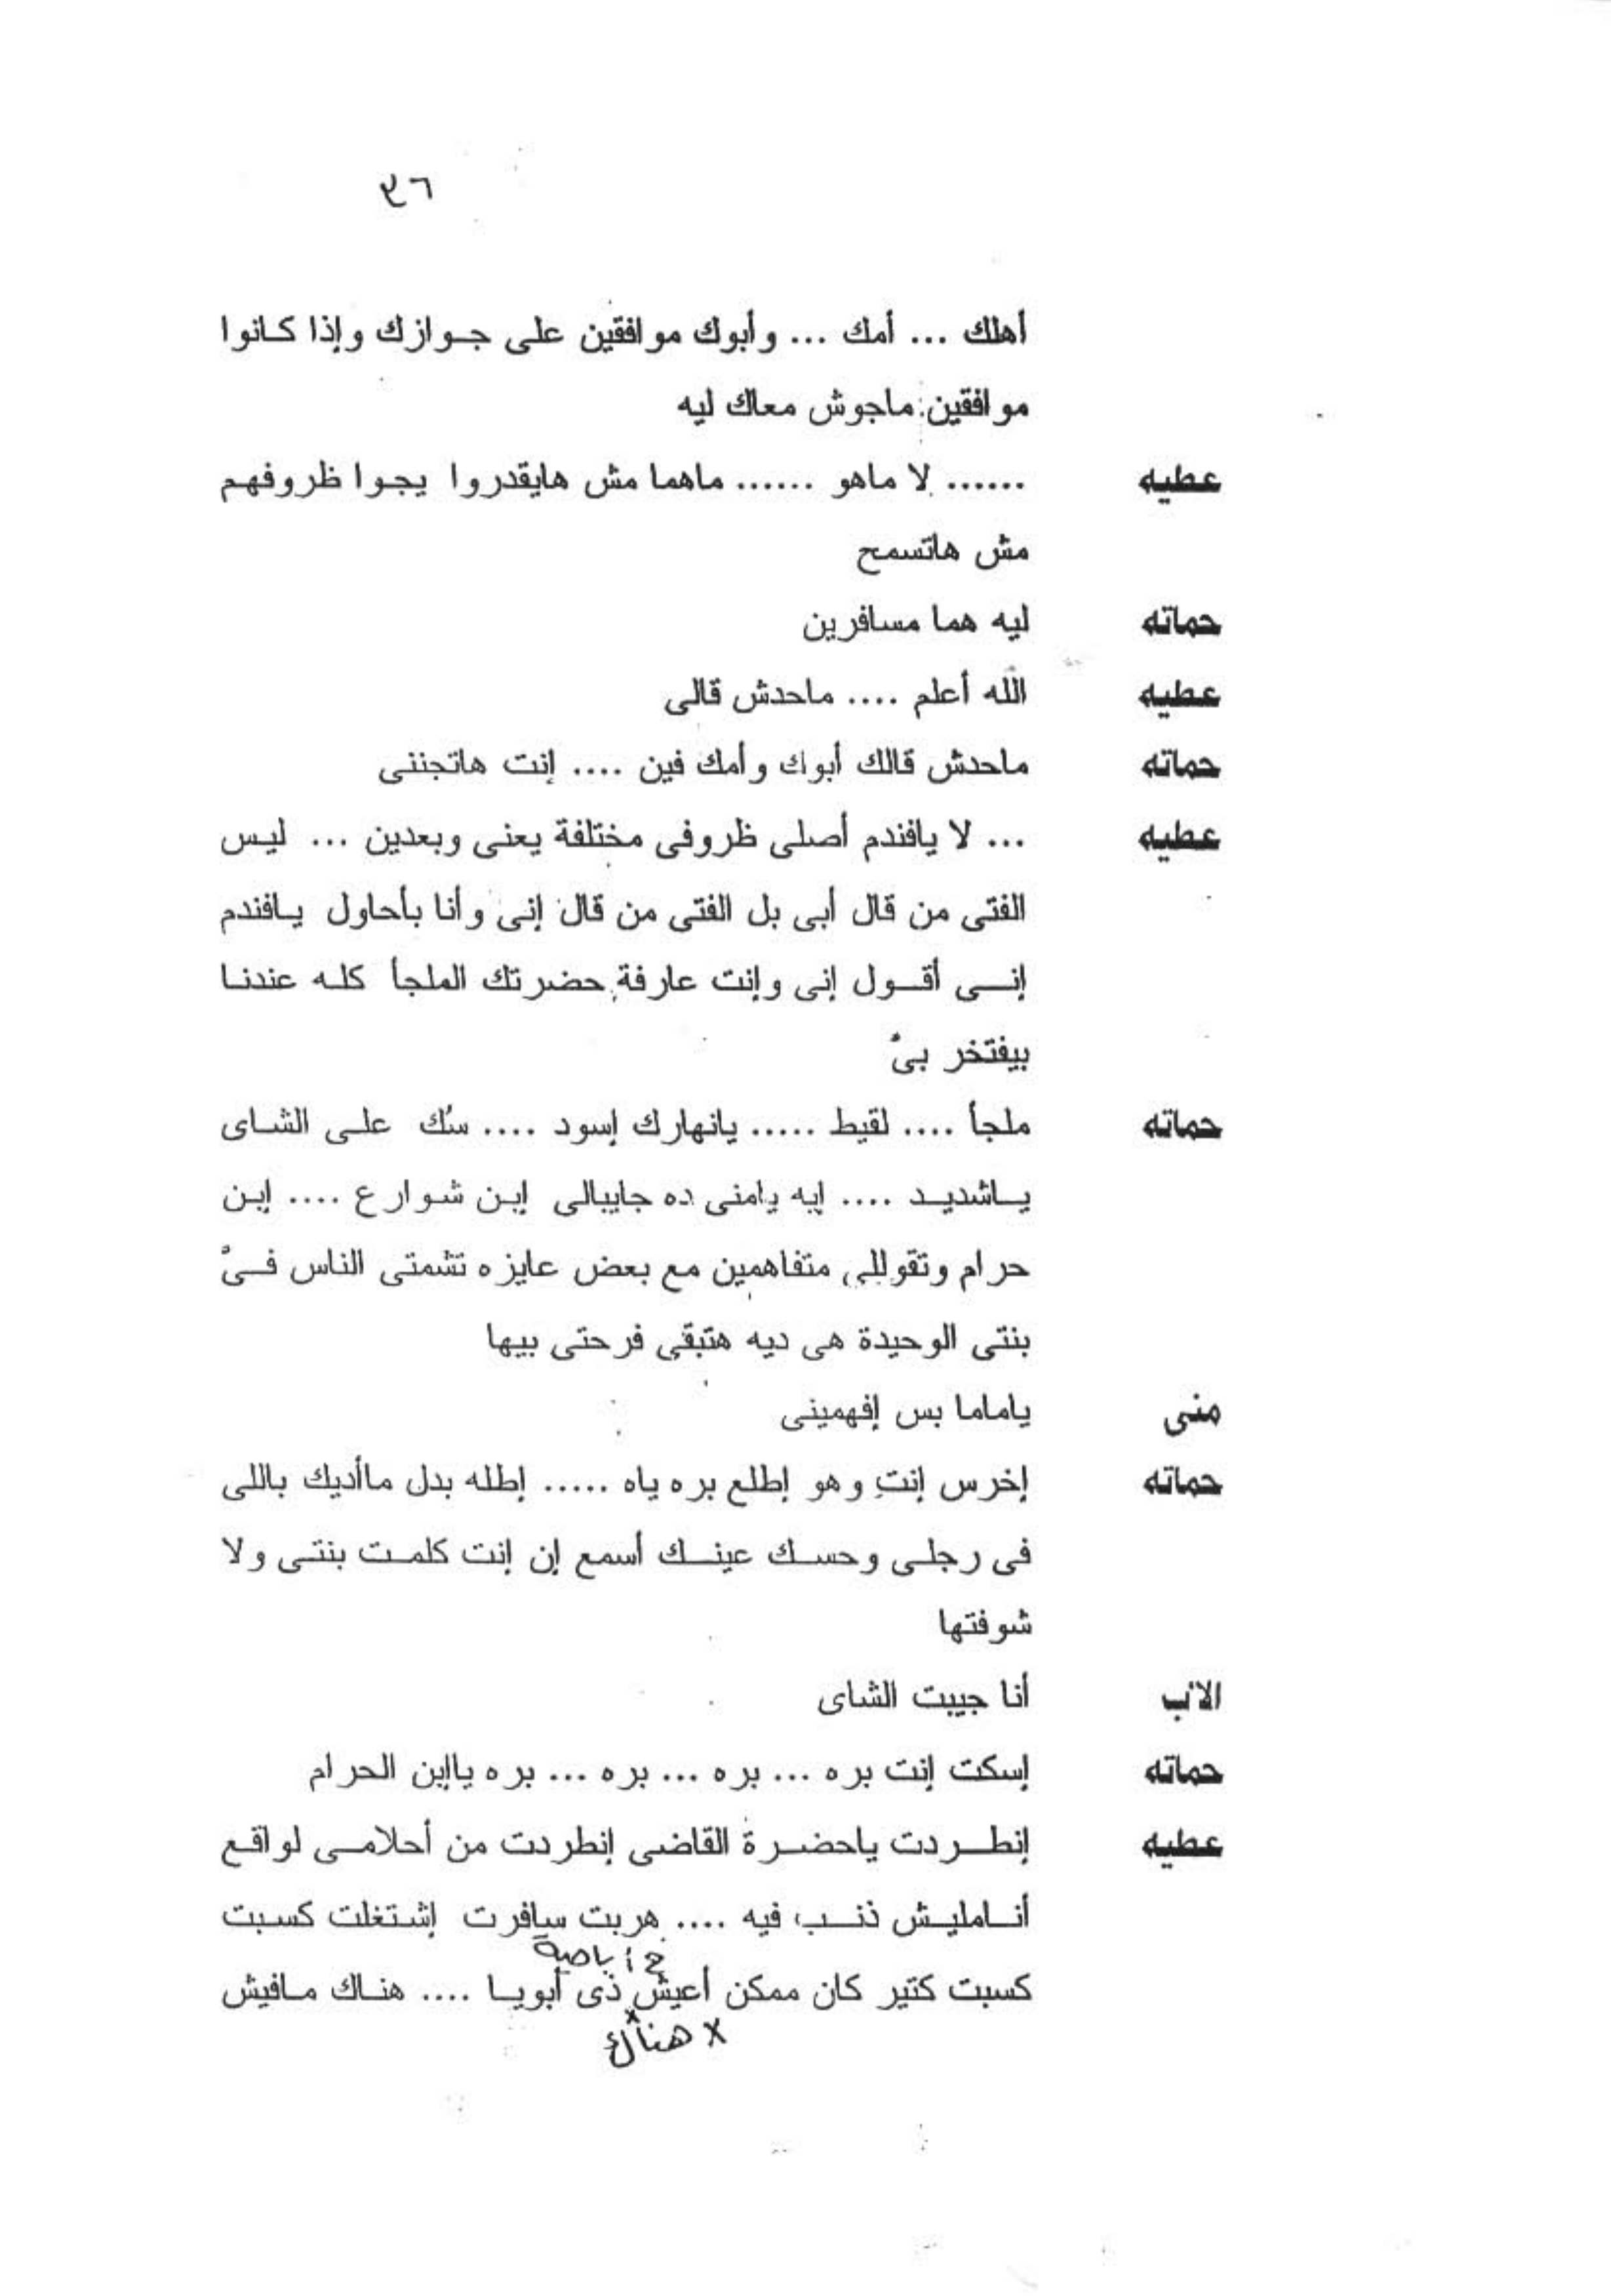 ٣٦
أهلك ... أمك ... وأبوك موافقين على جوازك وإذا كانوا
موافقين ماجوش معاك ليه
عطيه ...... لا ماهو ...... ماهما مش هايقدروا يجوا ظروفهم
مش هاتسمح
حماته ليه هما مسافرين
عطيه الله أعلم .... ماحدش قالى
حماته ماحدش قالك أبوك وأمك فين .... إنت هاتجننى
عطيه ... لا يافندم أصلى ظروفى مختلفة يعنى وبعدين ... ليس
الفتى من قال أبى بل الفتى من قال إنى وأنا بأحاول يافندم
إنى أقول إنى وإنت عارفة حضرتك الملجأ كله عندنا
بيفتخر بىّ
حماته ملجأ .... لقيط ..... يانهارك إسود .... سُك على الشاى
ياشديد .... إيه يامنى ده جايبالى إبن شوارع .... إبن
حرام وتقوللى متفاهمين مع بعض عايزه تشمتى الناس فىّ
بنتى الوحيدة هى ديه هتبقى فرحتى بيها
منى ياماما بس إفهمينى
حماته إخرس إنتِ وهو إطلع بره ياه ..... إطله بدل ماأديك باللى
فى رجلى وحسك عينك أسمع إن إنت كلمت بنتى ولا
شوفتها
الأب أنا جيبت الشاى
حماته إسكت إنت بره ... بره ... بره ... بره ياإبن الحرام
عطيه إنطردت ياحضرة القاضى إنطردت من أحلامى لواقع
أنامليش ذنب فيه .... هربت سافرت إشتغلت كسبت
كسبت كتير كان ممكن أعيش ذى أبويا .... هناك مافيش
x هناك